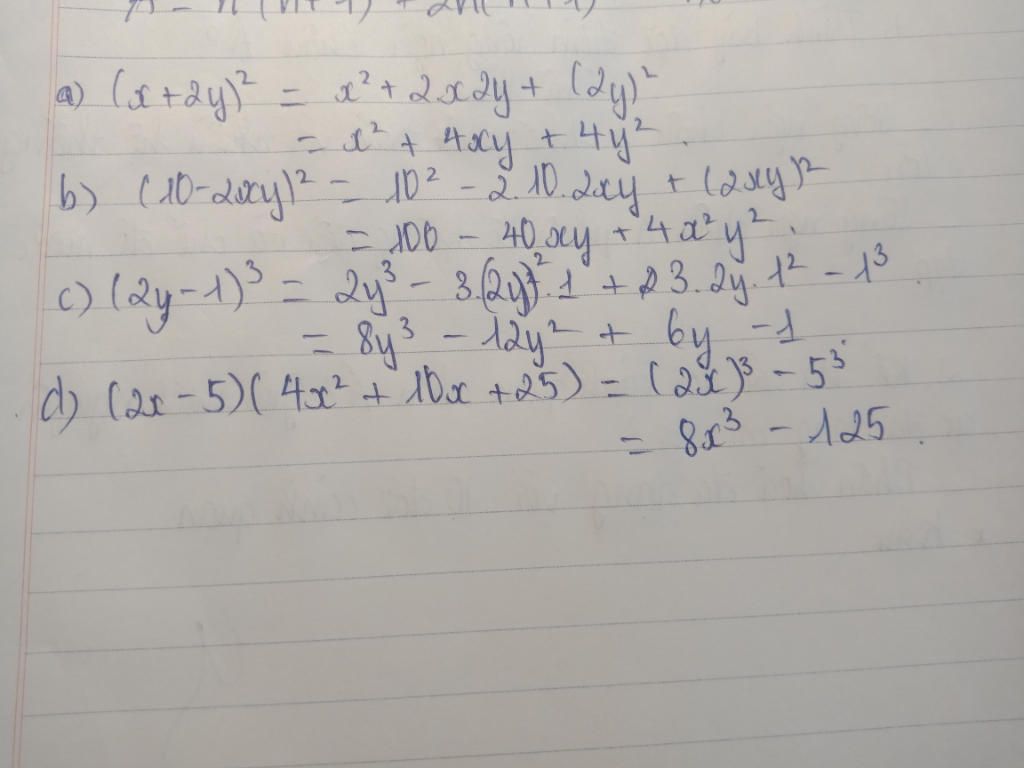 a) (x+2y)² = x² + 2x2y + (2y)²
= x² + 4xy + 4y².
b) (10-2xy)² = 10² - 2.10.2xy + (2xy)²
= 100 - 40xy + 4x²y².
c) (2y-1)³ = 2y³ - 3.(2y)².1 + 3.2y.1² - 1³
= 8y³ - 12y² + 6y - 1
d) (2x-5)(4x² + 10x + 25) = (2x)³ - 5³
= 8x³ - 125.